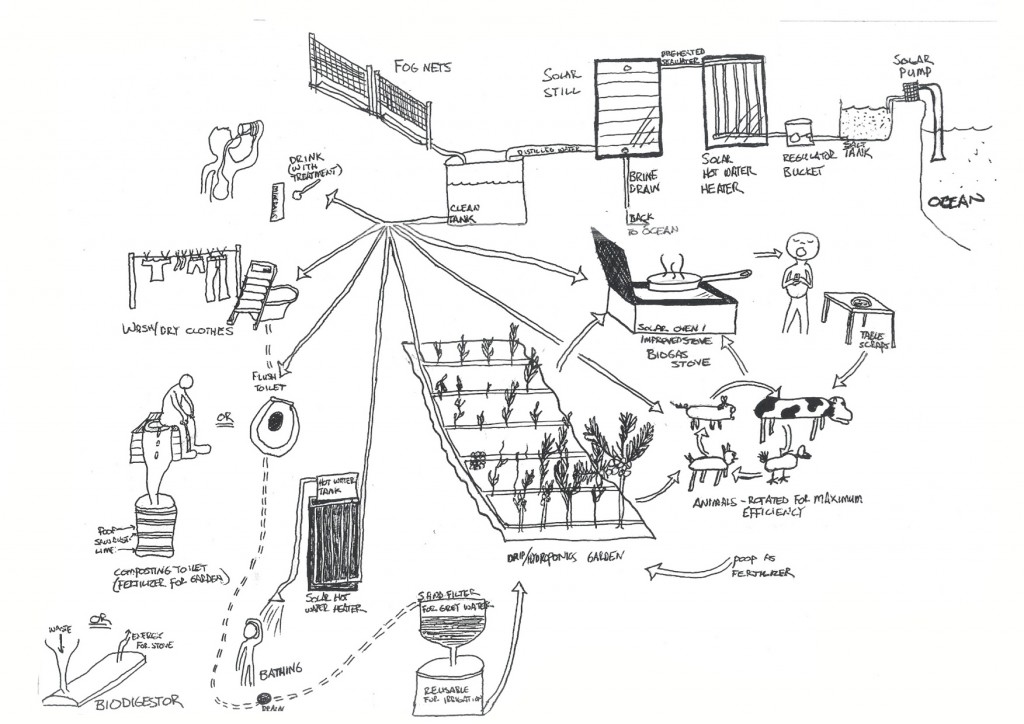 FOG NETS
SOLAR
STILL
PREHEATED
SEAWATER
SOLAR
PUMP
DISTILLED WATER
SALT
TANK
REGULATOR
BUCKET
SOLAR
HOT WATER
HEATER
OCEAN
BRINE
DRAIN
BACK
TO OCEAN
CLEAN
TANK
DRINK
(WITH
TREATMENT)
MINERALS
WASH/DRY CLOTHES
SOLAR OVEN/
IMPROVED STOVE
BIOGAS
STOVE
TABLE
SCRAPS
FLUSH
TOILET
OR
HOT WATER
TANK
ANIMALS - ROTATED FOR MAXIMUM
EFFICIENCY
POOP
SAWDUST
LIME
COMPOSTING TOILET
(FERTILIZER FOR GARDEN)
DRIP/HYDROPONICS GARDEN
POOP AS
FERTILIZER
SOLAR HOT
WATER HEATER
SAND FILTER
FOR GREY WATER
OR
WASTE
ENERGY
FOR STOVE
BIODIGESTOR
BATHING
DRAIN
REUSABLE
FOR IRRIGATION